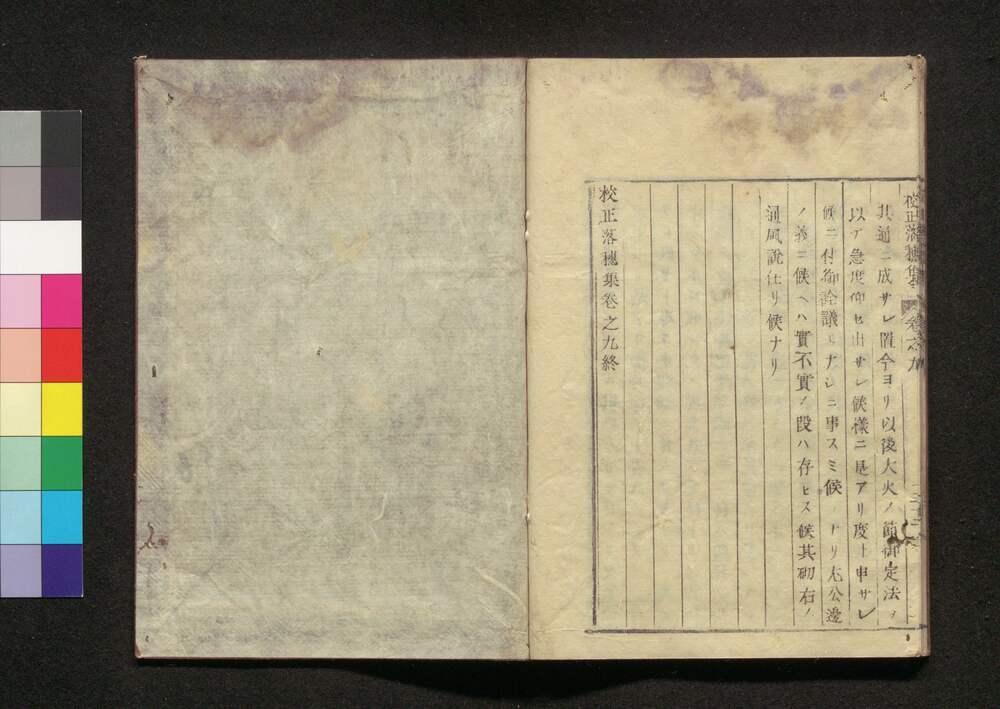 校正落穗集 卷之九
其通ニ成サレ置今ヨリ以後大火ノ節御定法ヲ
以テ急度仰セ出サレ候樣ニ是アリ度ト申サレ
候ニ付御詮議モナシニ事スミ候 ナリ尤公邊
ノ義ニ候ヘハ實不實ノ段ハ存セス候其砌右ノ
通風說仕リ候ナリ
校正落穗集卷之九終